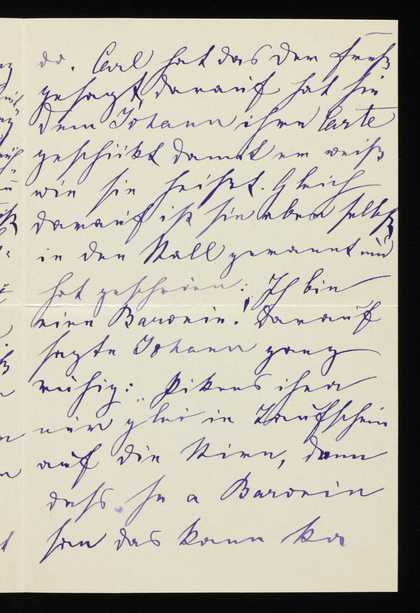 do. Carl hat das der Fürst
gesagt, darauf hat sie
dem Johann ihre Carte
geschickt damit er weiß
wie sie heißt. Gleich
darauf ist sie aber selbst
in den Stall gerannt und
hat geschrien: Ich bin
eine Baronin! Darauf
sagte Johann ganz
ruhig: „Pikens ihna
nur glei in Taufschein
auf die Stirn, denn
dass Se a Baronin
san das kann ka